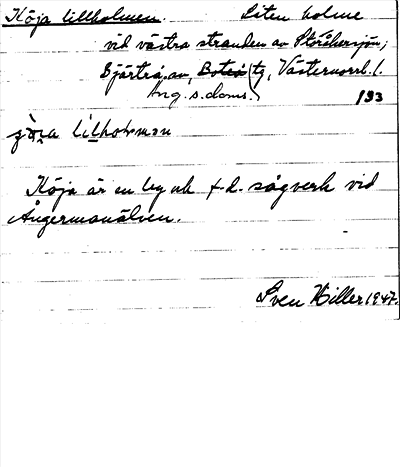 Köja lillholmen. Liten holme
vid västra stranden av Storåkersjön;
Bjärtrå sn, Boteå tg, Västernorrl. l.
Ång. s. doms. 193
lilholmən
Köja är en by och f.d. sågverk vid
Ångermanälven.
Sven Hiller 1947.